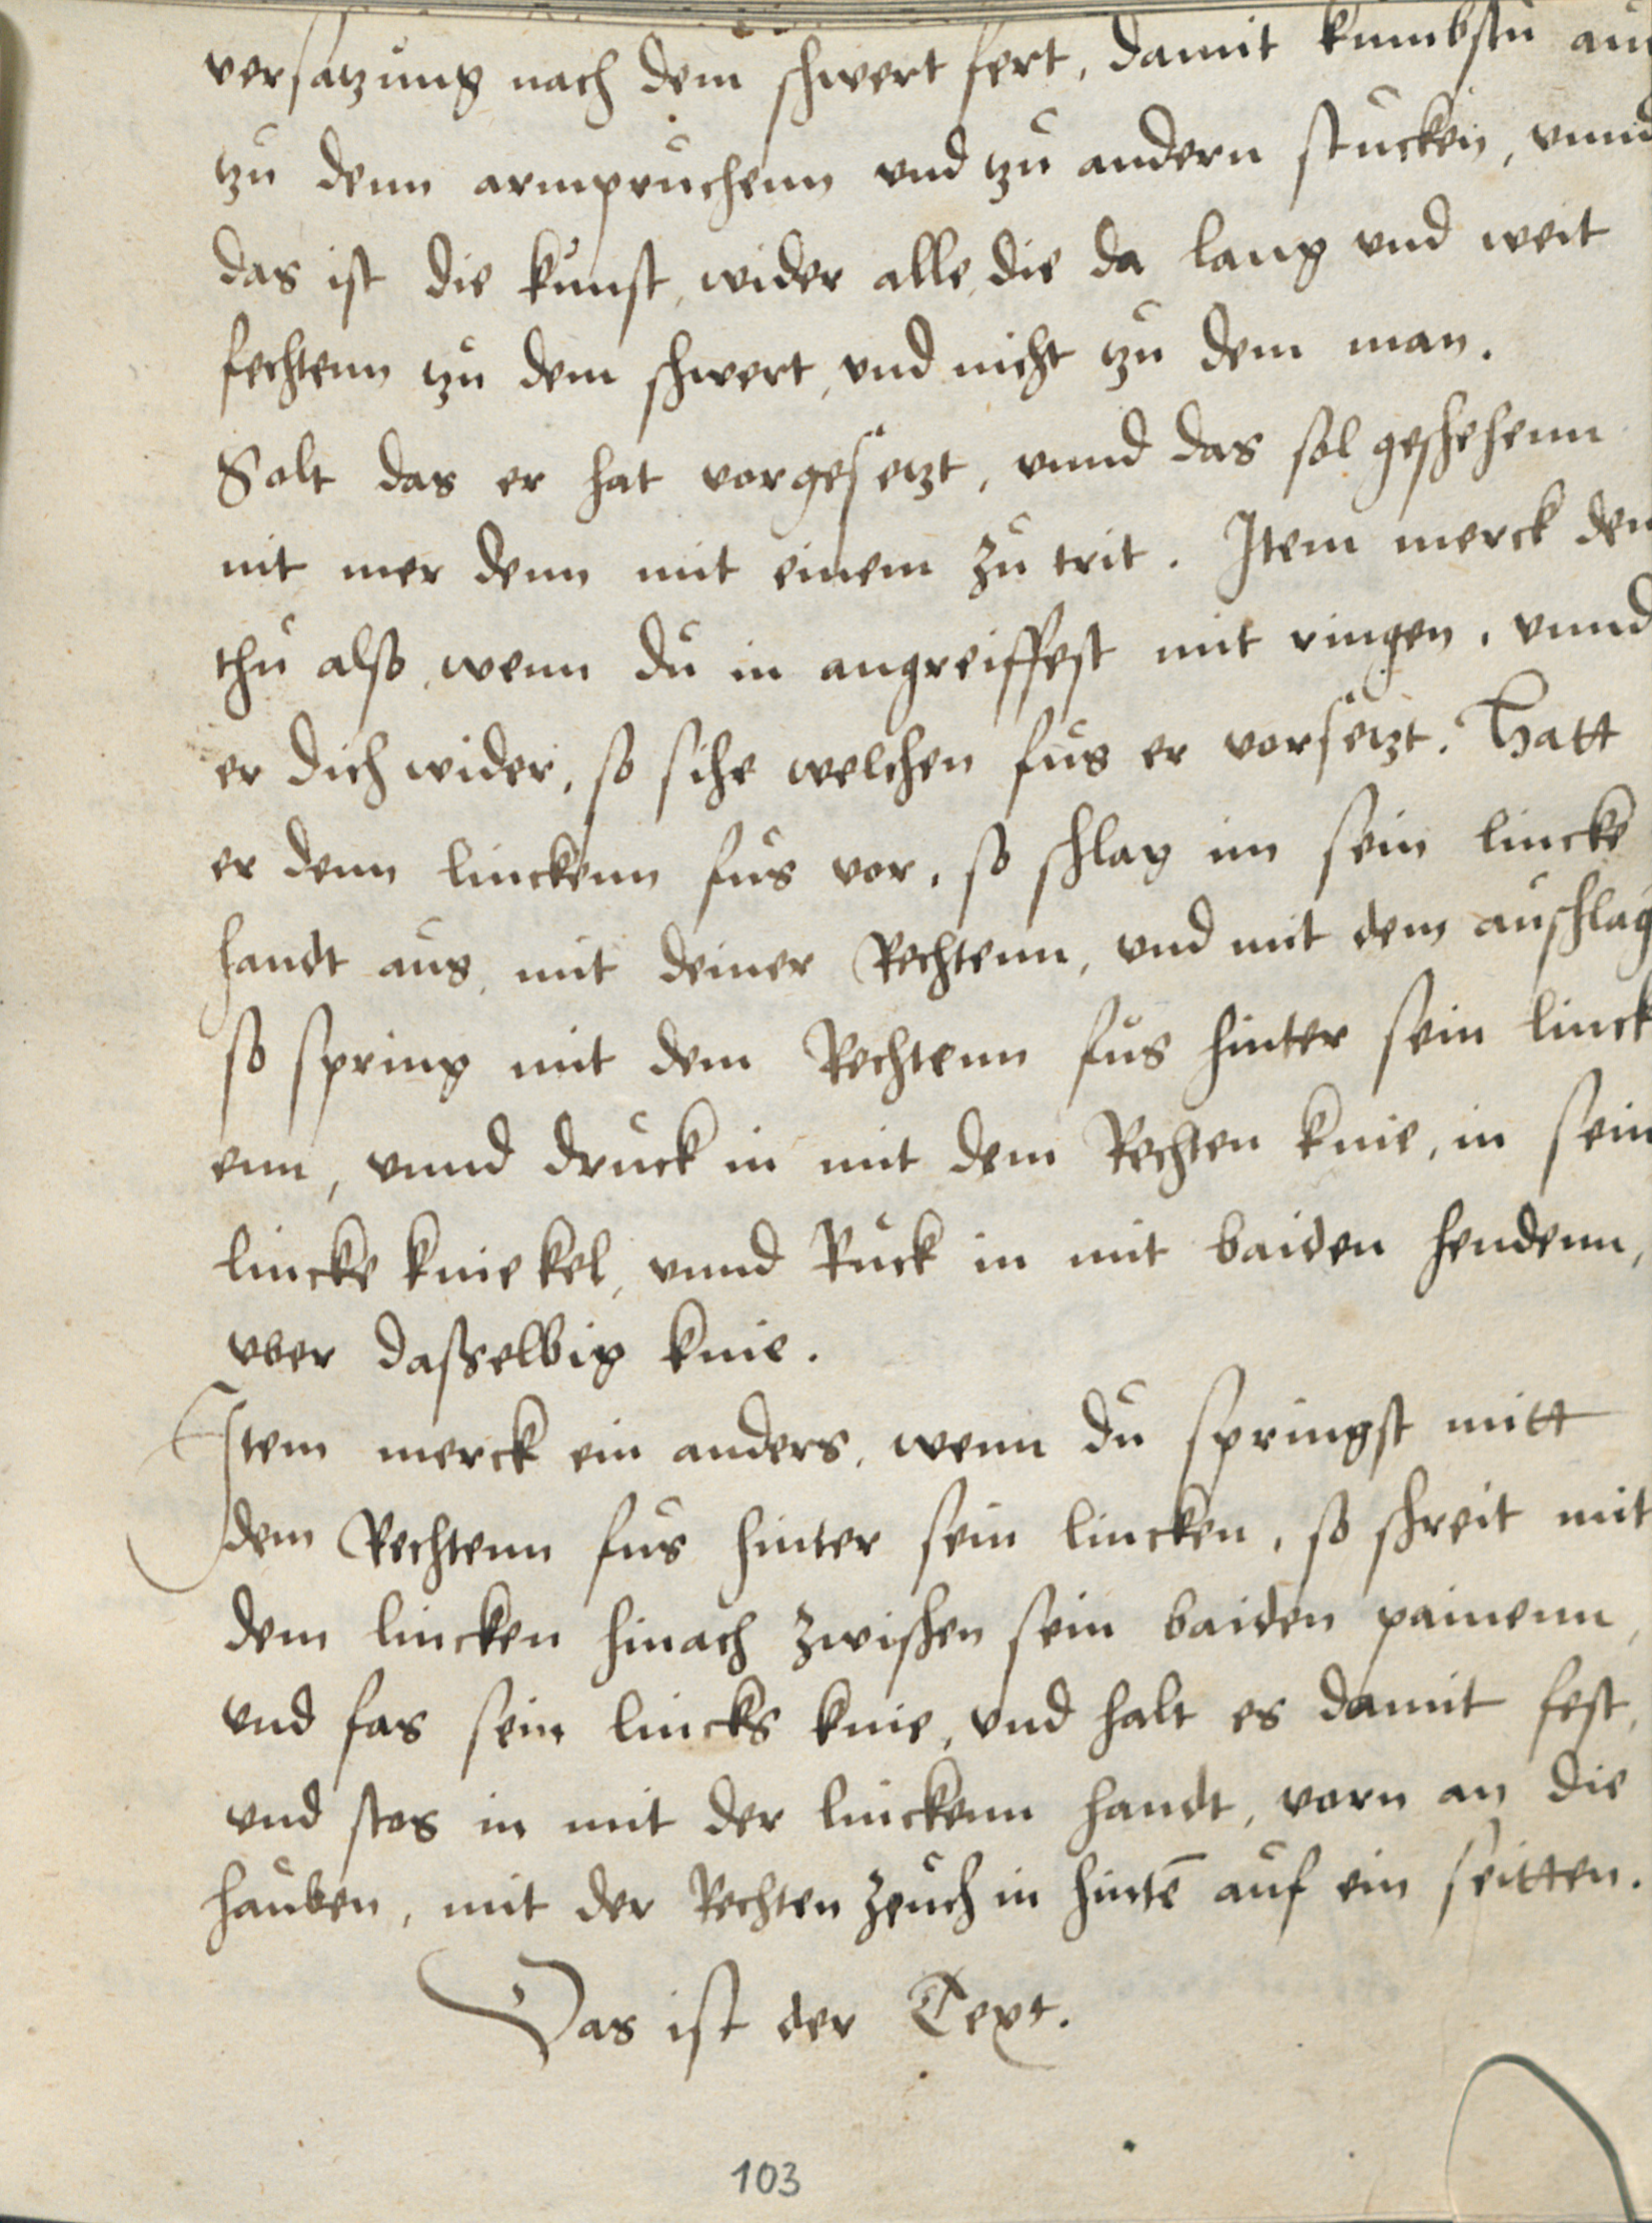 versatzung nach dem schwert fert, damit kumbstu auch
zu denn armpruchenn und tzu andern stucken, vnnd
das ist die kunst, wider alle, die da lang vnd weit
fechtenn tzu dem schwert, vnd nicht tzu dem man.
Solt das er hat vorgesetzt, vnnd das sol geschehenn
nit mer denn mit einem zu trit. Item merck den
thu also, wenn du in angreiffest mit ringen, vnnd
er dich wider, so sihe welchen fus er vorsetzt. Hatt
er denn linckenn fus vor, so schlag im sein lincke
handt aus, mit deiner Rechtenn, vnd mit dem auschlag
so spring mit dem Rechtenn fus hinter sein linck
enn, vnnd druck in mit dem Rechten knie, in sein
lincke kniekel, vnnd Ruck in mit baiden hendenn,
vber dasselbig knie.
Item merck ein anders, wenn du springst mitt
dem Rechtenn fus hinter sein lincken, so schreit mit
dem lincken hinach zwischen sein baiden painenn,
vnd fas sein lincks knie, vnd halt es damit fest,
vnd stos in mit der linckenn handt, vorn an die
hauben, mit der Rechten zeuch in hintē auf ein seitten.
Das ist der Text.
103